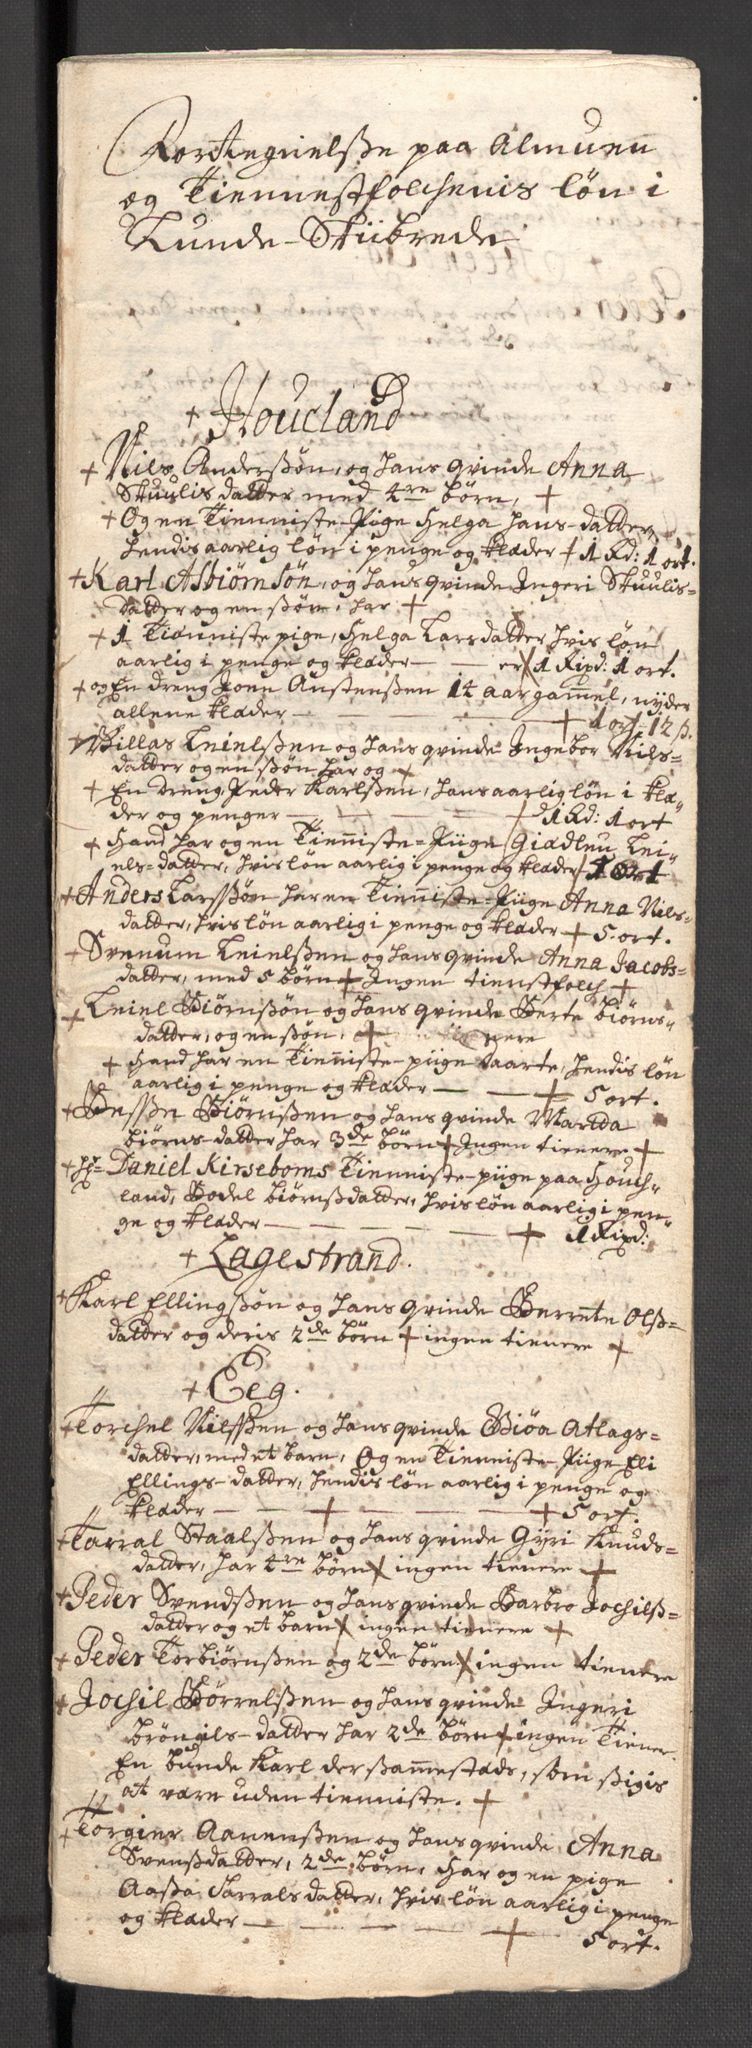 Fortegnelsse paa Almuen
og Tiennestfolchenis løn i
Lunde-Skiibrede
+ Houcland
+ Niels Anderssøn, og hans qvinde Anna
Skuulis datter med 4re børn, +
+ Og en Tienniste-Pige Helga Hans-datter,
hendis aarlig løn i penge og klæder + 1 Rd: 1 ort.
+ Karl Asbiørnsøn, og hans qvinde Ingeri Skuulis=
datter og en søn, har +
+ 1 Tienniste pige, Helga Larsdatter hvis løn
aarlig i penge og klæder — — er 1 Rixd: 1 ort.
+ og En dreng Joen Austenssen 14 aar gammel, nyder
allene klæder — — — + 1 ort 12 s.
+ Villas Leielssen og hans qvinde Ingebor Niels=
datter og en søn har og +
+ En dreng Peder Karlssen, hans aarlig løn i klæ=
der og penger — — — + 1 Rd: 1 ort
+ Hand har og en Tienniste=Piige Giødleu Lei=
els-datter, hvis løn aarlig i penge og klæder + 5 ort
+ Anders Larssøn har en Tienniste=Piige Anna Niels=
datter, hvis løn aarlig i penge og klæder + 5. ort.
+ Svenum Leielssen og hans qvinde Anna Jacobs=
datter, med 5 børn + Ingen tienstfolch +
+ Leiel Biørnssøn og hans qvinde Berte biørns=
datter, og en søn, +
+ Hand har en Tienniste-piige Maarte, hendis løn
aarlig i penge og klæder — — + 5 ort.
+ Bessse Biørnssen og hans qvinde Marita
biørns-datter har 3de børn + Ingen tienere +
+ Hr= Daniel Kirseboms Tienniste-piige paa Houch=
land, Bodel biørnssdatter, hvis løn aarlig i pen=
ge og klæder — — — — + 1 Rixd:
+ Lagestrand.
+ Karl Ellingssøn og hans qvinde Berrete Olss=
datter og deris 2de børn + ingen tienere +
+ Eeg.
+ Torchel Nilssen og hans qvinde Giøa Atlags=
datter, med et barn, Og en Tienniste-Piige Eli
Ellings-datter, hendis løn aarlig i penge og
klæder — — + — — — + 5 ort.
+ Tarral Staalssen og hans qvinde Gyri Knuds=
datter, har 4re børn + ingen tienere +
+ Peder Svendssen og hans qvinde Barbro Jochilss=
datter og et barn + ingen tienere +
+ Peder Torbiørnssen og 2de børn + ingen tienere
+ Jochil Børrelssen og hans qvinde Ingeri
brønils-datter har 2de børn + ingen Tiener.
En bunde Karl der sammestæds, som sigis
at være uden tienniste. +
+ Torgier Aanenssen og hans qvinde Anna
Svenssdatter, 2de børn, Har og en pige
Aasa Tarrals datter, hvis løn aarlig i penge
og klæder — — — — + 5 ort.